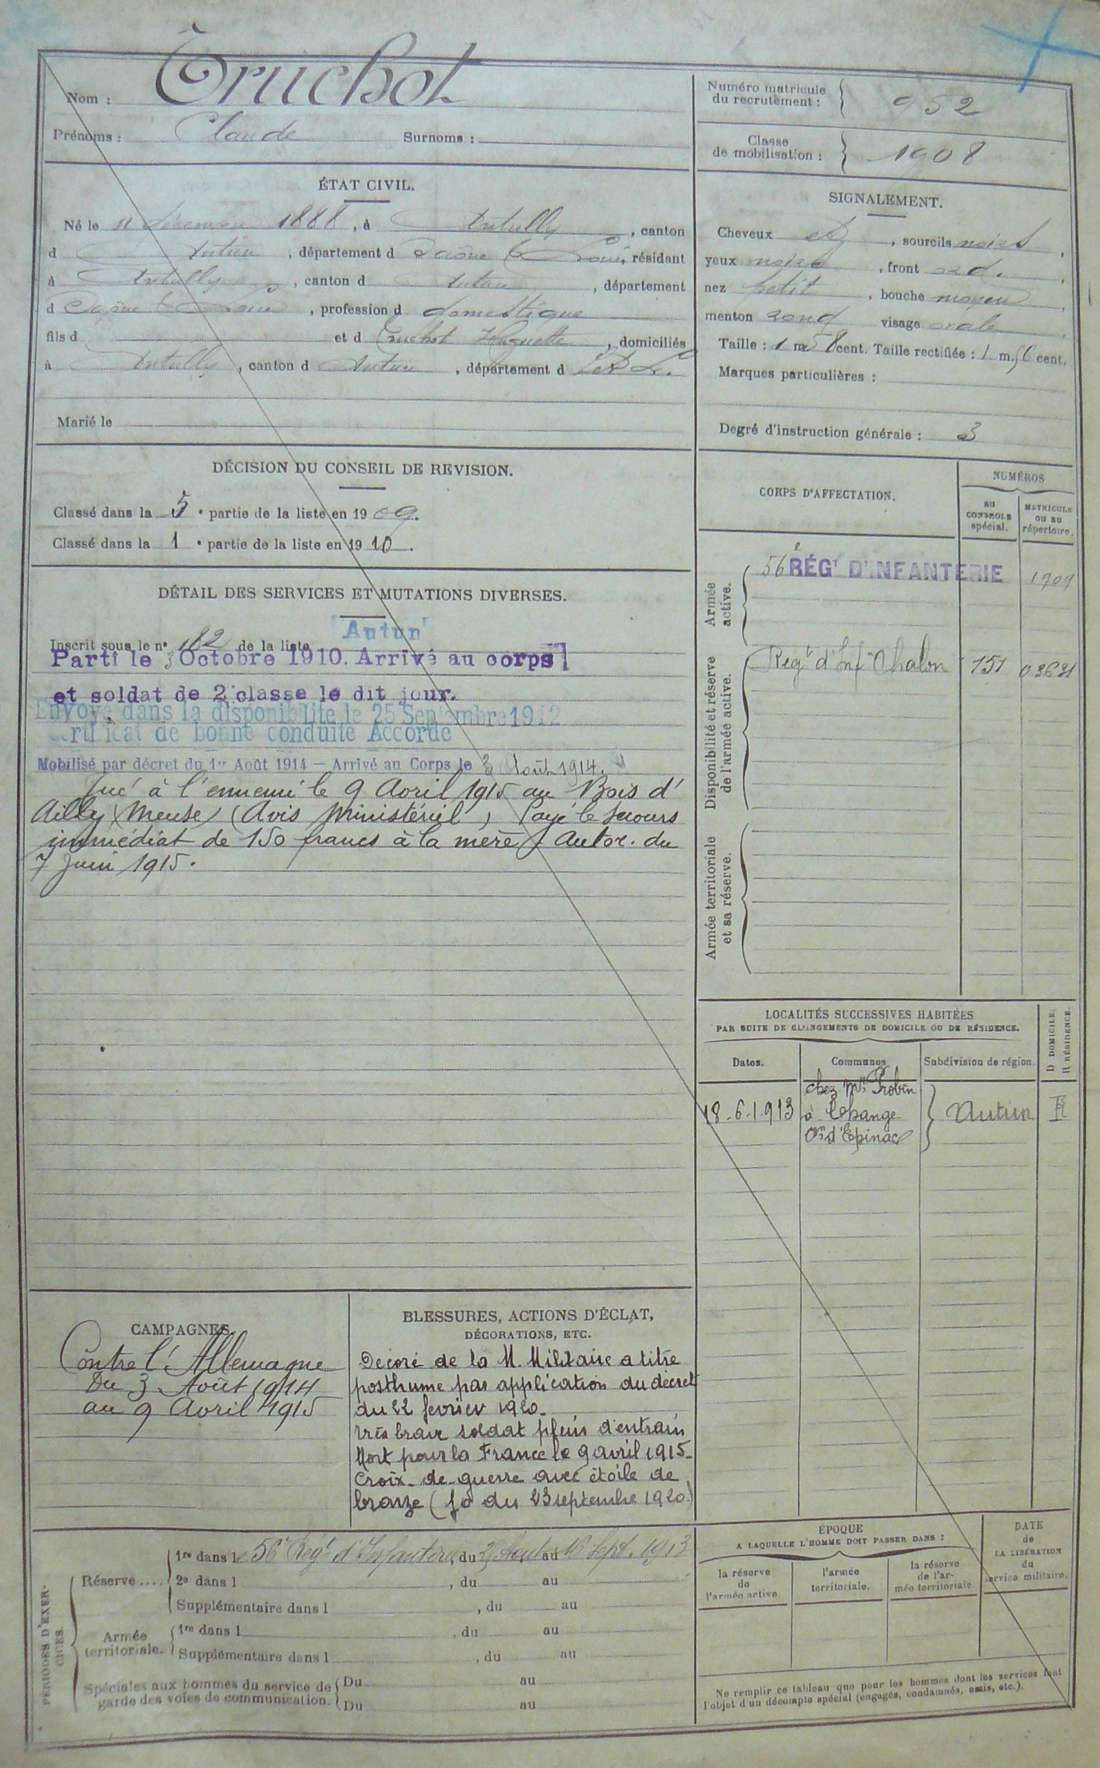 Nom : Truchot
Prénoms : Claude Surnoms :
Numéro matricule du recrutement : 952
Classe de mobilisation : 1908
ÉTAT CIVIL.
Né le 11 décembre 1888, à Antully, canton
d Autun, département d Saône & Loire, résidant
à Antully, canton d Autun, département
d Saône & Loire, profession d domestique
fils d et d Truchot Huguette, domiciliés
à Antully, canton d Autun, département d S. & L.
Marié le
SIGNALEMENT.
Cheveux , sourcils noirs,
yeux noirs, front ord.
nez petit, bouche moyen
menton rond visage ovale
Taille : 1 m 58 cent. Taille rectifiée : 1 m. 56 cent.
Marques particulières :
Degré d'instruction générale : 3
DÉCISION DU CONSEIL DE REVISION.
Classé dans la 5e partie de la liste en 1909.
Classé dans la 1e partie de la liste en 1910.
DÉTAIL DES SERVICES ET MUTATIONS DIVERSES.
Inscrit sous le no 182 de la liste Autun
Parti le 3 Octobre 1910. Arrivé au corps
et soldat de 2e classe le dit jour.
Envoyé dans la disponibilité le 25 Septembre 1912
Certificat de bonne conduite Accordé
Mobilisé par décret du 1er Août 1914 — Arrivé au Corps le 3 Août 1914.
Tué à l'ennemi le 9 Avril 1915 au Bois d'
Ailly (Meuse) (Avis Ministériel) Payé le secours
immédiat de 150 francs à la mère. Autor. du
7 Juin 1915.
CORPS D'AFFECTATION.
NUMÉROS
AU CONTROLE spécial.
MATRICULE OU AU répertoire.
Armée active.
56e RÉGt D'INFANTERIE 1909
Disponibilité et réserve de l'armée active.
Régt d'Infie Chalon 151 03621
Armée territoriale et sa réserve.
LOCALITÉS SUCCESSIVES HABITÉES
PAR SUITE DE CHANGEMENTS DE DOMICILE OU DE RÉSIDENCE.
Dates. Communes. Subdivision de région. D DOMICILE. R RÉSIDENCE.
chez Mr Probin
18-6-1913 à Cchange Autun R
d'Epinac
CAMPAGNES.
Contre l'Allemagne
Du 3 Août 1914
au 9 Avril 1915
BLESSURES, ACTIONS D'ÉCLAT,
DÉCORATIONS, ETC.
Décoré de la M. Militaire à titre
posthume par application du décret
du 22 février 1920.
Très brave soldat plein d'entrain
Mort pour la France le 9 avril 1915.
Croix de guerre avec étoile de
bronze (Jo du 23 septembre 1920)
PÉRIODES D'EXERCICES.
Réserve.... 1re dans le 56e Régt d'Infanterie, du au 16 Sept. 1913
2e dans l , du au
Supplémentaire dans l , du au
Armée territoriale. 1re dans l , du au
Supplémentaire dans l , du au
Spéciales aux hommes du service de Du au
garde des voies de communication. Du au
ÉPOQUE
A LAQUELLE L'HOMME DOIT PASSER DANS :
la réserve de l'armée active.
l'armée territoriale.
la réserve de l'armée territoriale
DATE de LA LIBÉRATION du service militaire.
Ne remplir ce tableau que pour les hommes dont les services font
l'objet d'un décompte spécial (engagés, condamnés, omis, etc.).